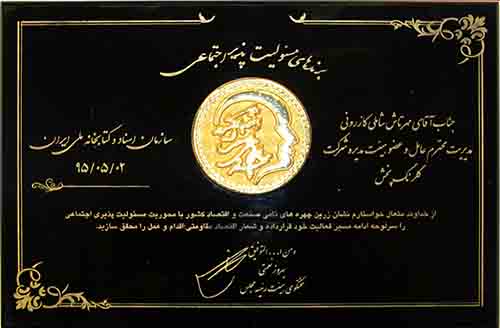 برندهای مسئولیت پذیر اجتماعی
جناب آقای مهرتاش شاملی کازرونی
مدیریت محترم عامل و عضو هیئت مدیره شرکت
گلرنگ پخش
سازمان اسناد و کتابخانه ملی ایران
۹۵/۰۵/۰۲
از خداوند متعال خواستارم نشان زرین چهره های نامی صنعت و اقتصاد کشور با محوریت مسئولیت پذیری اجتماعی
را سرلوحه ادامه مسیر فعالیت خود قرارداده و شعار اقتصاد مقاومتی،اقدام و عمل را محقق سازید.
و من ا... التوفیق
بهروز نعمتی
سخنگوی هیئت رئیسه مجلس